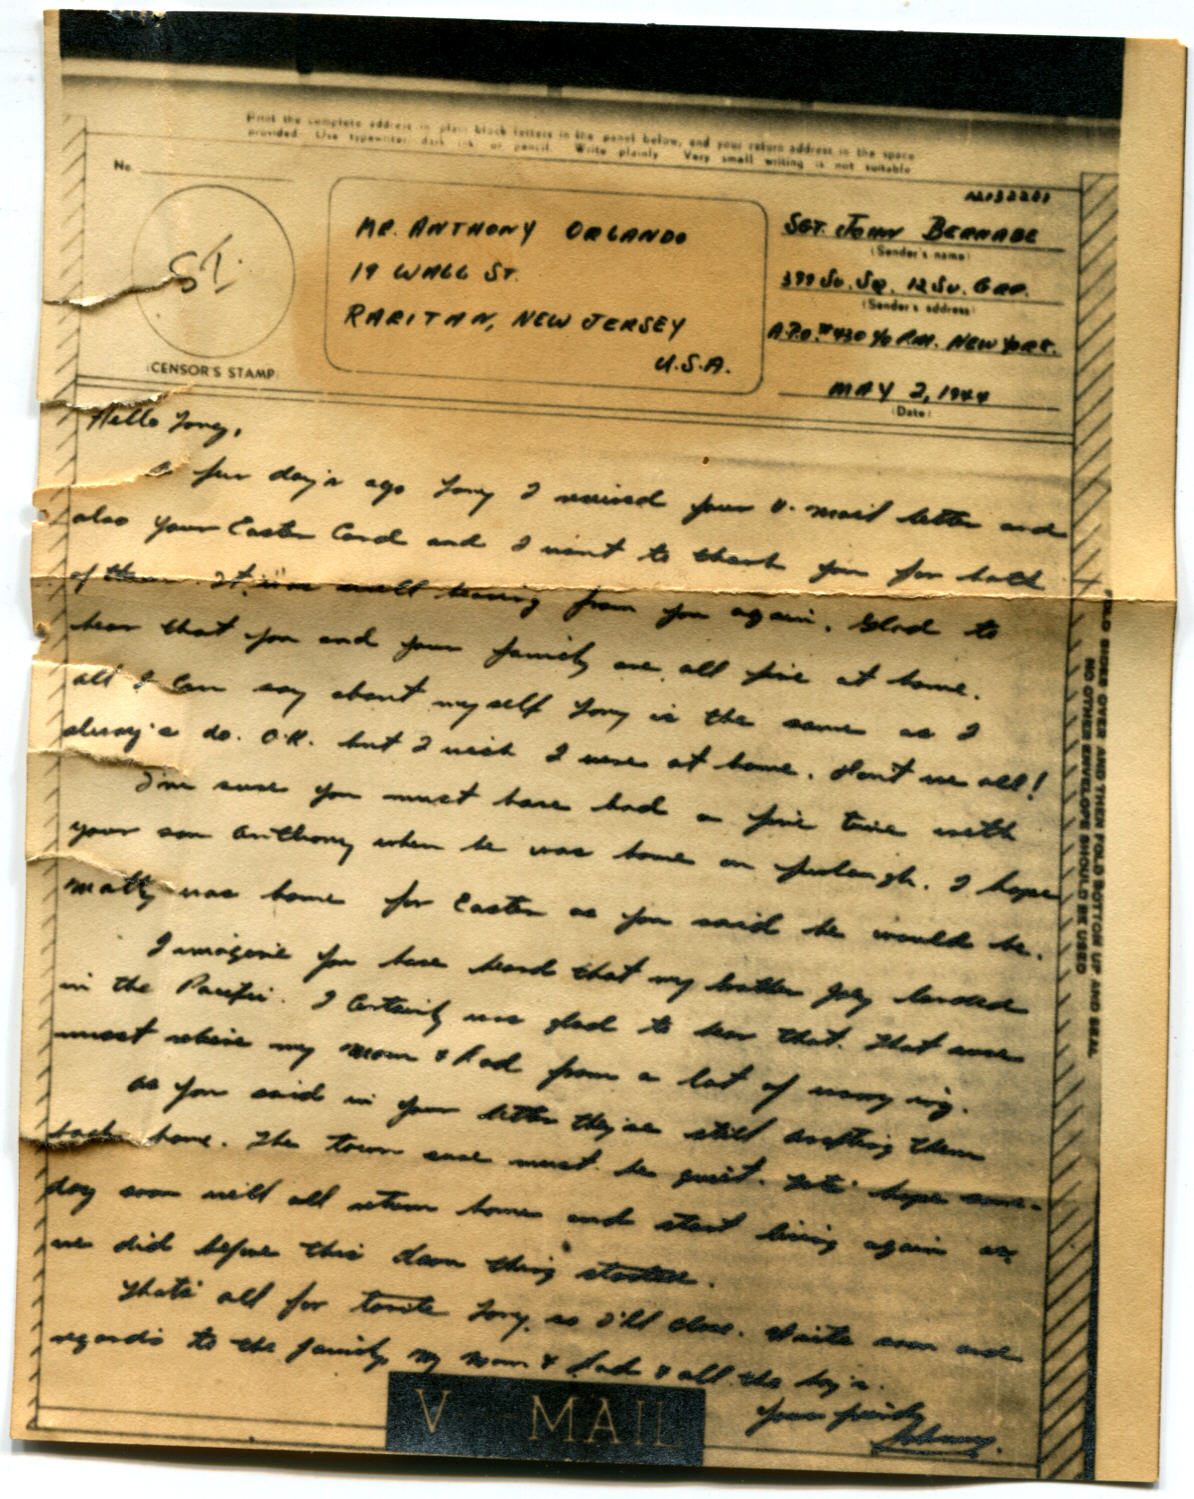 Print the complete address in plain black letters in the panel below, and your return address in the space
provided. Use typewriter, dark ink, or pencil. Write plainly. Very small writing is not suitable
No.
MR. ANTHONY ORLANDO
19 WALL ST.
RARITAN, NEW JERSEY
U.S.A.
(CENSOR'S STAMP)
SGT. JOHN BERNABE
(Sender's name)
399 Sv. Sq. 12 Sv. GRP.
(Sender's address)
A.P.O. #430 c/o P.M. NEW YORK.
MAY 2, 1944
(Date)
Hello Tony,
A few day's ago Tony I received your V-mail letter and
also your Easter Card and I want to thank you for both
of them. It was swell hearing from you again. Glad to
hear that you and your family are all fine at home.
All I can say about myself Tony is the same as I
alway's do. O.K. but I wish I were at home. Don't we all!
I'm sure you must have had a fine time with
your son Anthony when he was home on furlough. I hope
Matty was home for Easter as you said he would be.
I imagine you have heard that my brother Joey landed
in the Pacific. I certainly was glad to hear that. That sure
must relieve my Mom & Dad from a lot of worrying.
As you said in your letter they're still drafting them
back home. The town sure must be quiet. Let's hope some-
day soon we'll all return home and start living again as
we did before this damn thing started.
That's all for tonite Tony, so I'll close. Write soon and
regards to the family, my mom & Dad & all the boy's.
Your friend,
Johnny.
V-MAIL
FOLD SIDES OVER AND THEN FOLD BOTTOM UP AND SEAL
NO OTHER ENVELOPE SHOULD BE USED